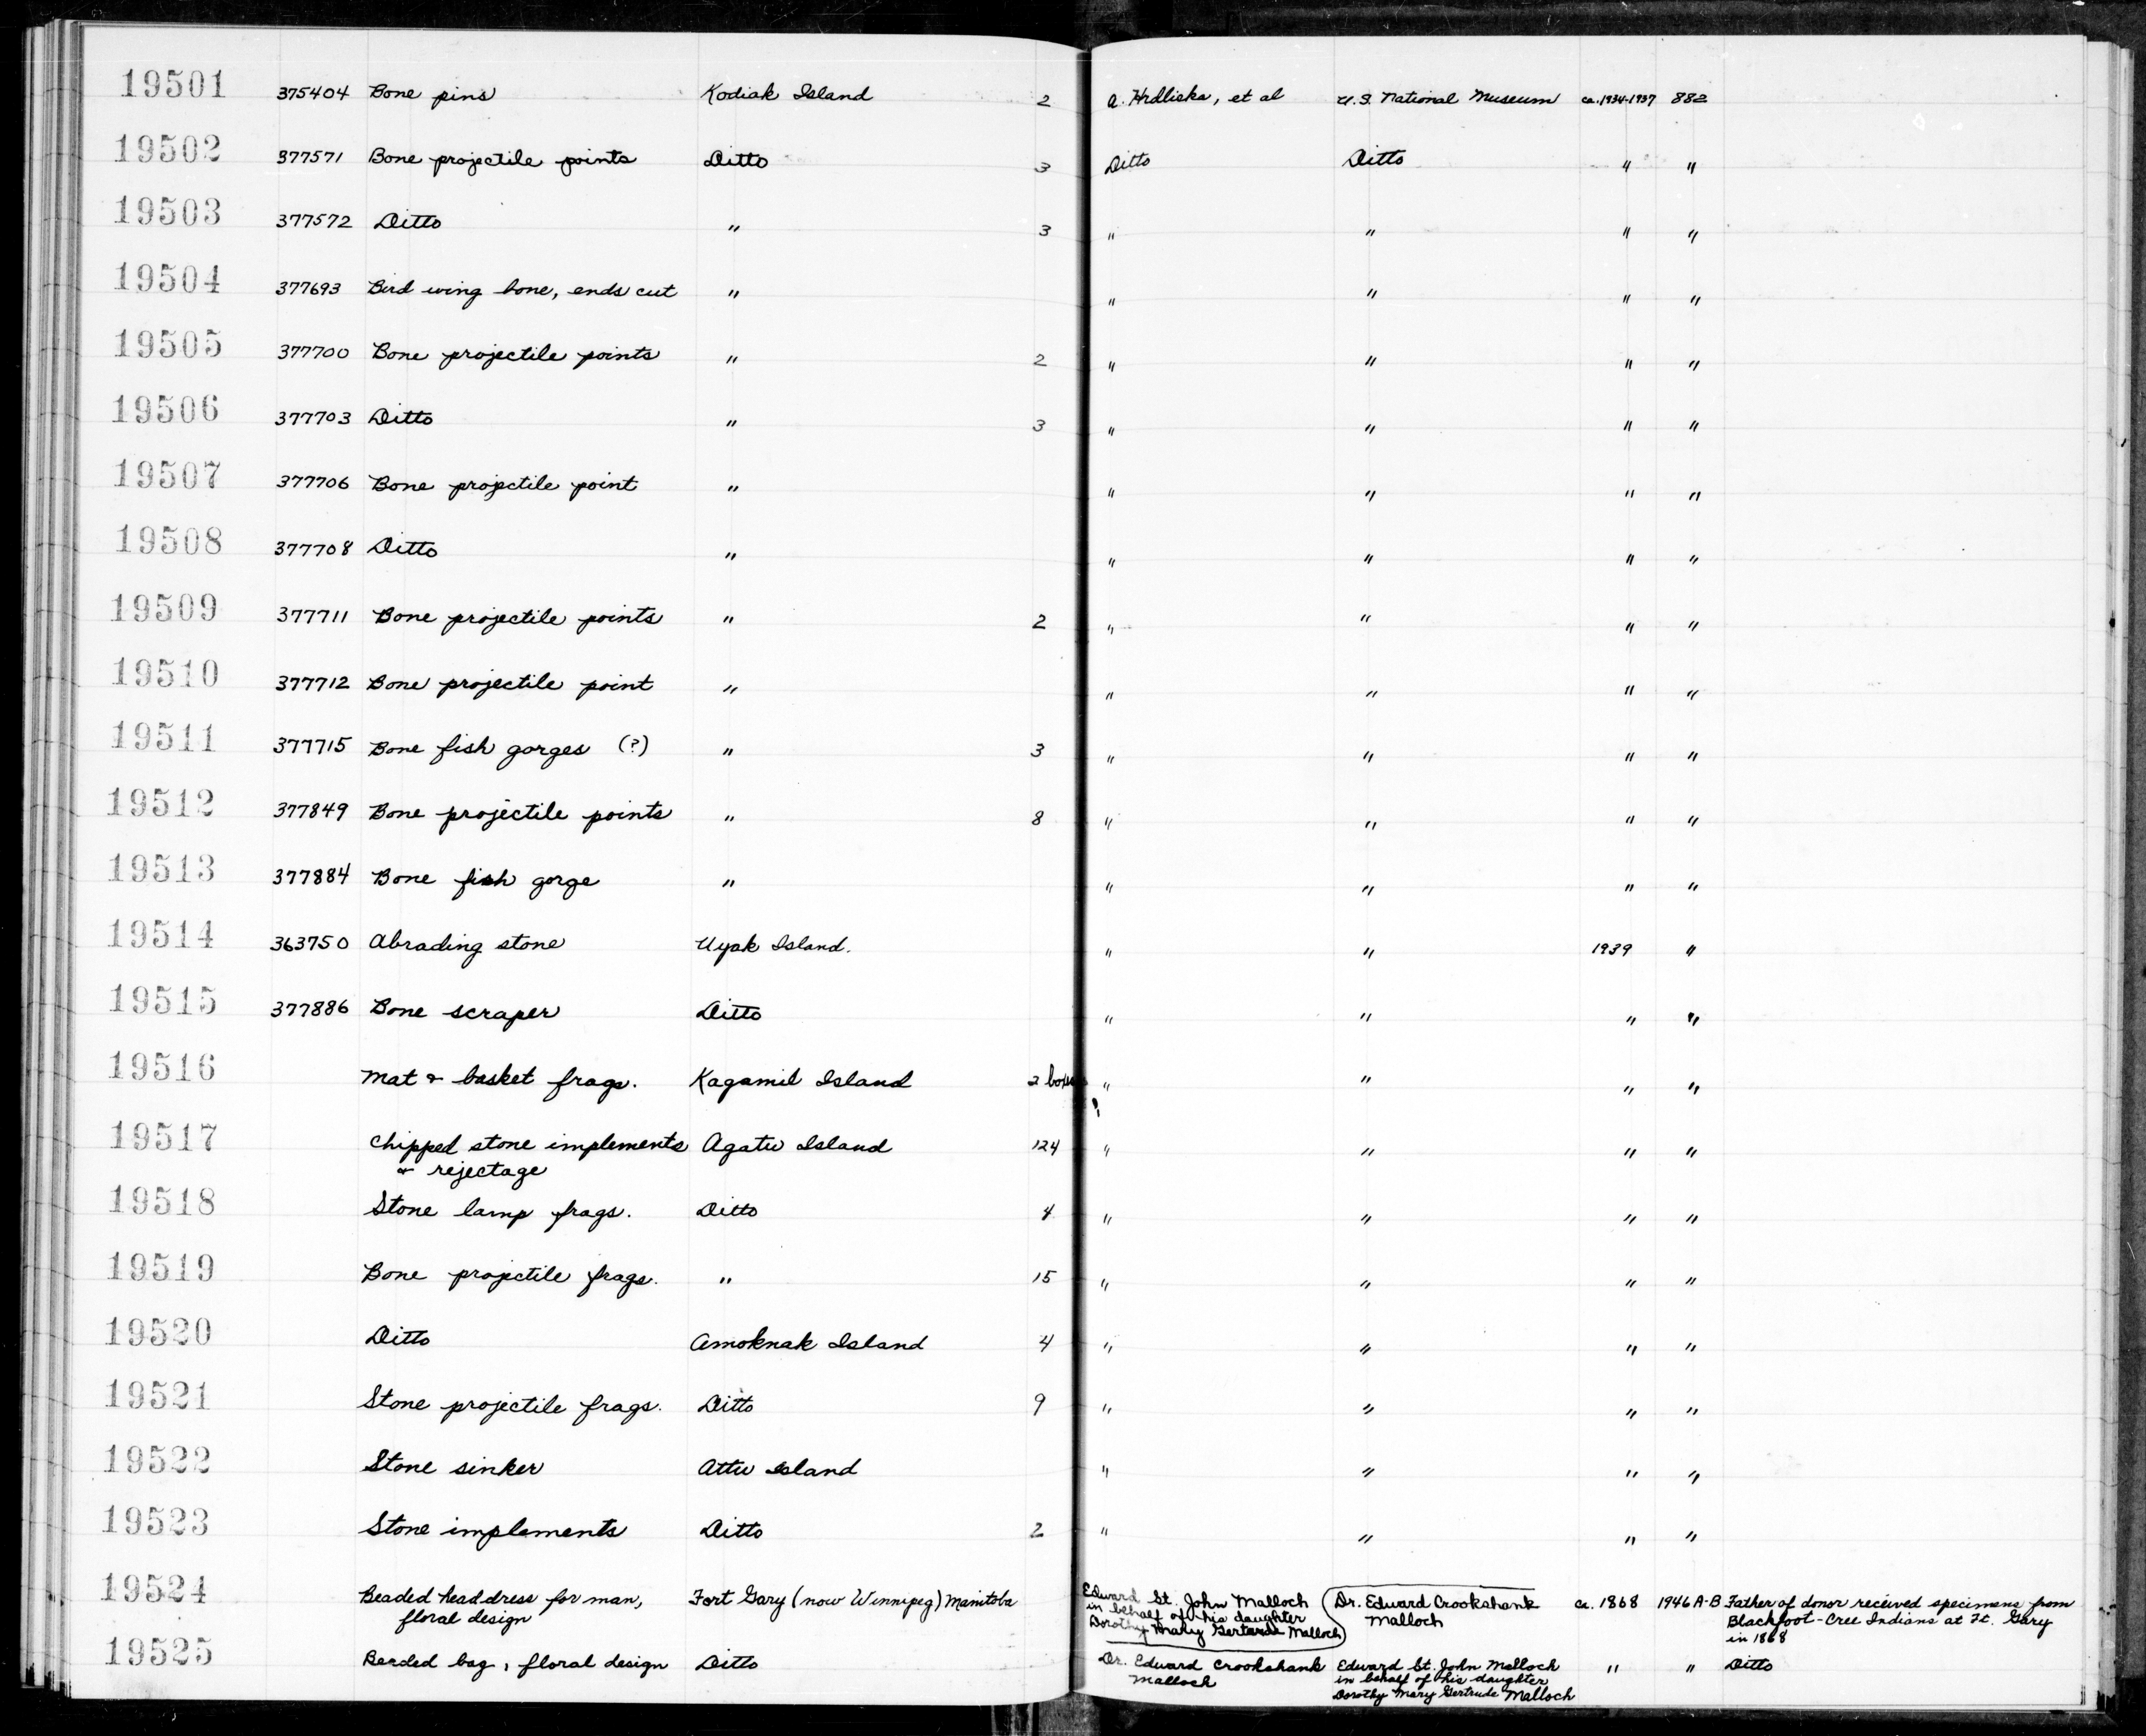 19501 375404 Bone pins Kodiak Island 2 A. Hrdlicka, et al U.S. National Museum ca. 1934-1937 882
19502 377571 Bone projectile points Ditto 3 Ditto Ditto " "
19503 377572 Ditto " 3 " " " "
19504 377693 Bird wing bone, ends cut " " " " "
19505 377700 Bone projectile points " 2 " " " "
19506 377703 Ditto " 3 " " " "
19507 377706 Bone projectile point " " " " "
19508 377708 Ditto " " " " "
19509 377711 Bone projectile points " 2 " " " "
19510 377712 Bone projectile point " " " " "
19511 377715 Bone fish gorges (?) " 3 " " " "
19512 377849 Bone projectile points " 8 " " " "
19513 377884 Bone fish gorge " " " " "
19514 363750 Abrading stone Uyak Island. " " 1939 "
19515 377886 Bone scraper Ditto " " " "
19516 Mat & basket frags. Kagamil Island 2 boxes " " " "
19517 Chipped stone implements Agatu Island 124 " " " "
& rejectage
19518 Stone lamp frags. Ditto 4 " " " "
19519 Bone projectile frags. " 15 " " " "
19520 Ditto Amoknak Island 4 " " " "
19521 Stone projectile frags. Ditto 9 " " " "
19522 Stone sinker Attu Island " " " "
19523 Stone implements Ditto 2 " " " "
19524 Beaded headdress for man, Fort Gary (now Winnipeg) Manitoba Edward St. John Malloch Dr. Edward Crookshank ca. 1868 1946 A-B Father of donor received specimens from
floral design in behalf of his daughter Malloch Blackfoot-Cree Indians at Ft. Gary
Dorothy Mary Gertrude Malloch in 1868
19525 Beaded bag, floral design Ditto Dr. Edward Crookshank Edward St. John Malloch " " Ditto
Malloch in behalf of his daughter
Dorothy Mary Gertrude Malloch